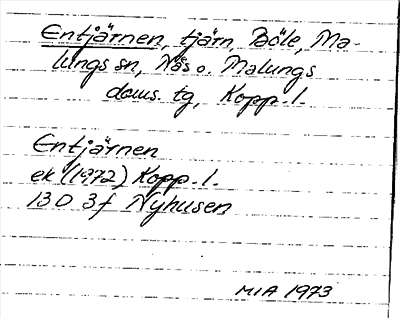 Entjärnen, tjärn, Böle, Ma-
lungs sn, Nås o. Malungs
doms. tg, Kopp. l.
Entjärnen
ek (1972) Kopp. l.
13D 3f Nyhusen
MIA 1973